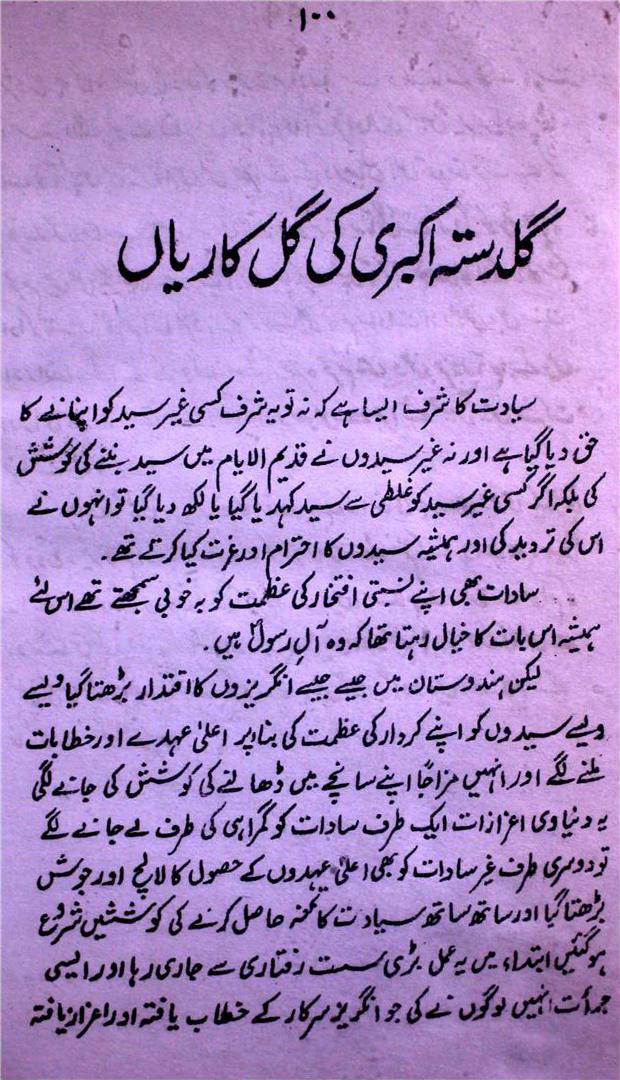 ۱۰۰
گلدستہ اکبری کی گل کاریاں
سیادت کا شرف ایسا ہے کہ نہ تو یہ شرف کسی غیر سید کو اپنانے کا
حق دیا گیا ہے اور نہ غیر سیدوں نے قدیم الایام میں سید بننے کی کوشش
کی بلکہ اگر کسی غیر سید کو غلطی سے سید کہدیا گیا یا لکھ دیا گیا تو انہوں نے
اس کی تردید کی اور ہمیشہ سیدوں کا احترام اور عزت کیا کرتے تھے۔
سادات بھی اپنے نسبتی افتخار کی عظمت کو بہ خوبی سمجھتے تھے اس لئے
ہمیشہ اس بات کا خیال رہتا تھا کہ وہ آلِ رسولؐ ہیں۔
لیکن ہندوستان میں جیسے جیسے انگریزوں کا اقتدار بڑھتا گیا ویسے
ویسے سیدوں کو اپنے کردار کی عظمت کی بنا پر اعلیٰ عہدے اور خطابات
ملنے لگے اور انہیں مزاجاً اپنے سانچے میں ڈھالنے کی کوشش کی جانے لگی
یہ دنیاوی اعزازات ایک طرف سادات کو گمراہی کی طرف لے جانے لگے
تو دوسری طرف غیر سادات کو بھی اعلیٰ عہدوں کے حصول کا لالچ اور جوش
بڑھتا گیا اور ساتھ ساتھ سیادت کا تمغہ حاصل کرنے کی کوششیں شروع
ہو گئیں ابتداء میں یہ عمل بڑی سست رفتاری سے جاری رہا اور ایسی
جرأت انہیں لوگوں نے کی جو انگریز سرکار کے خطاب یافتہ اور اعزاز یافتہ